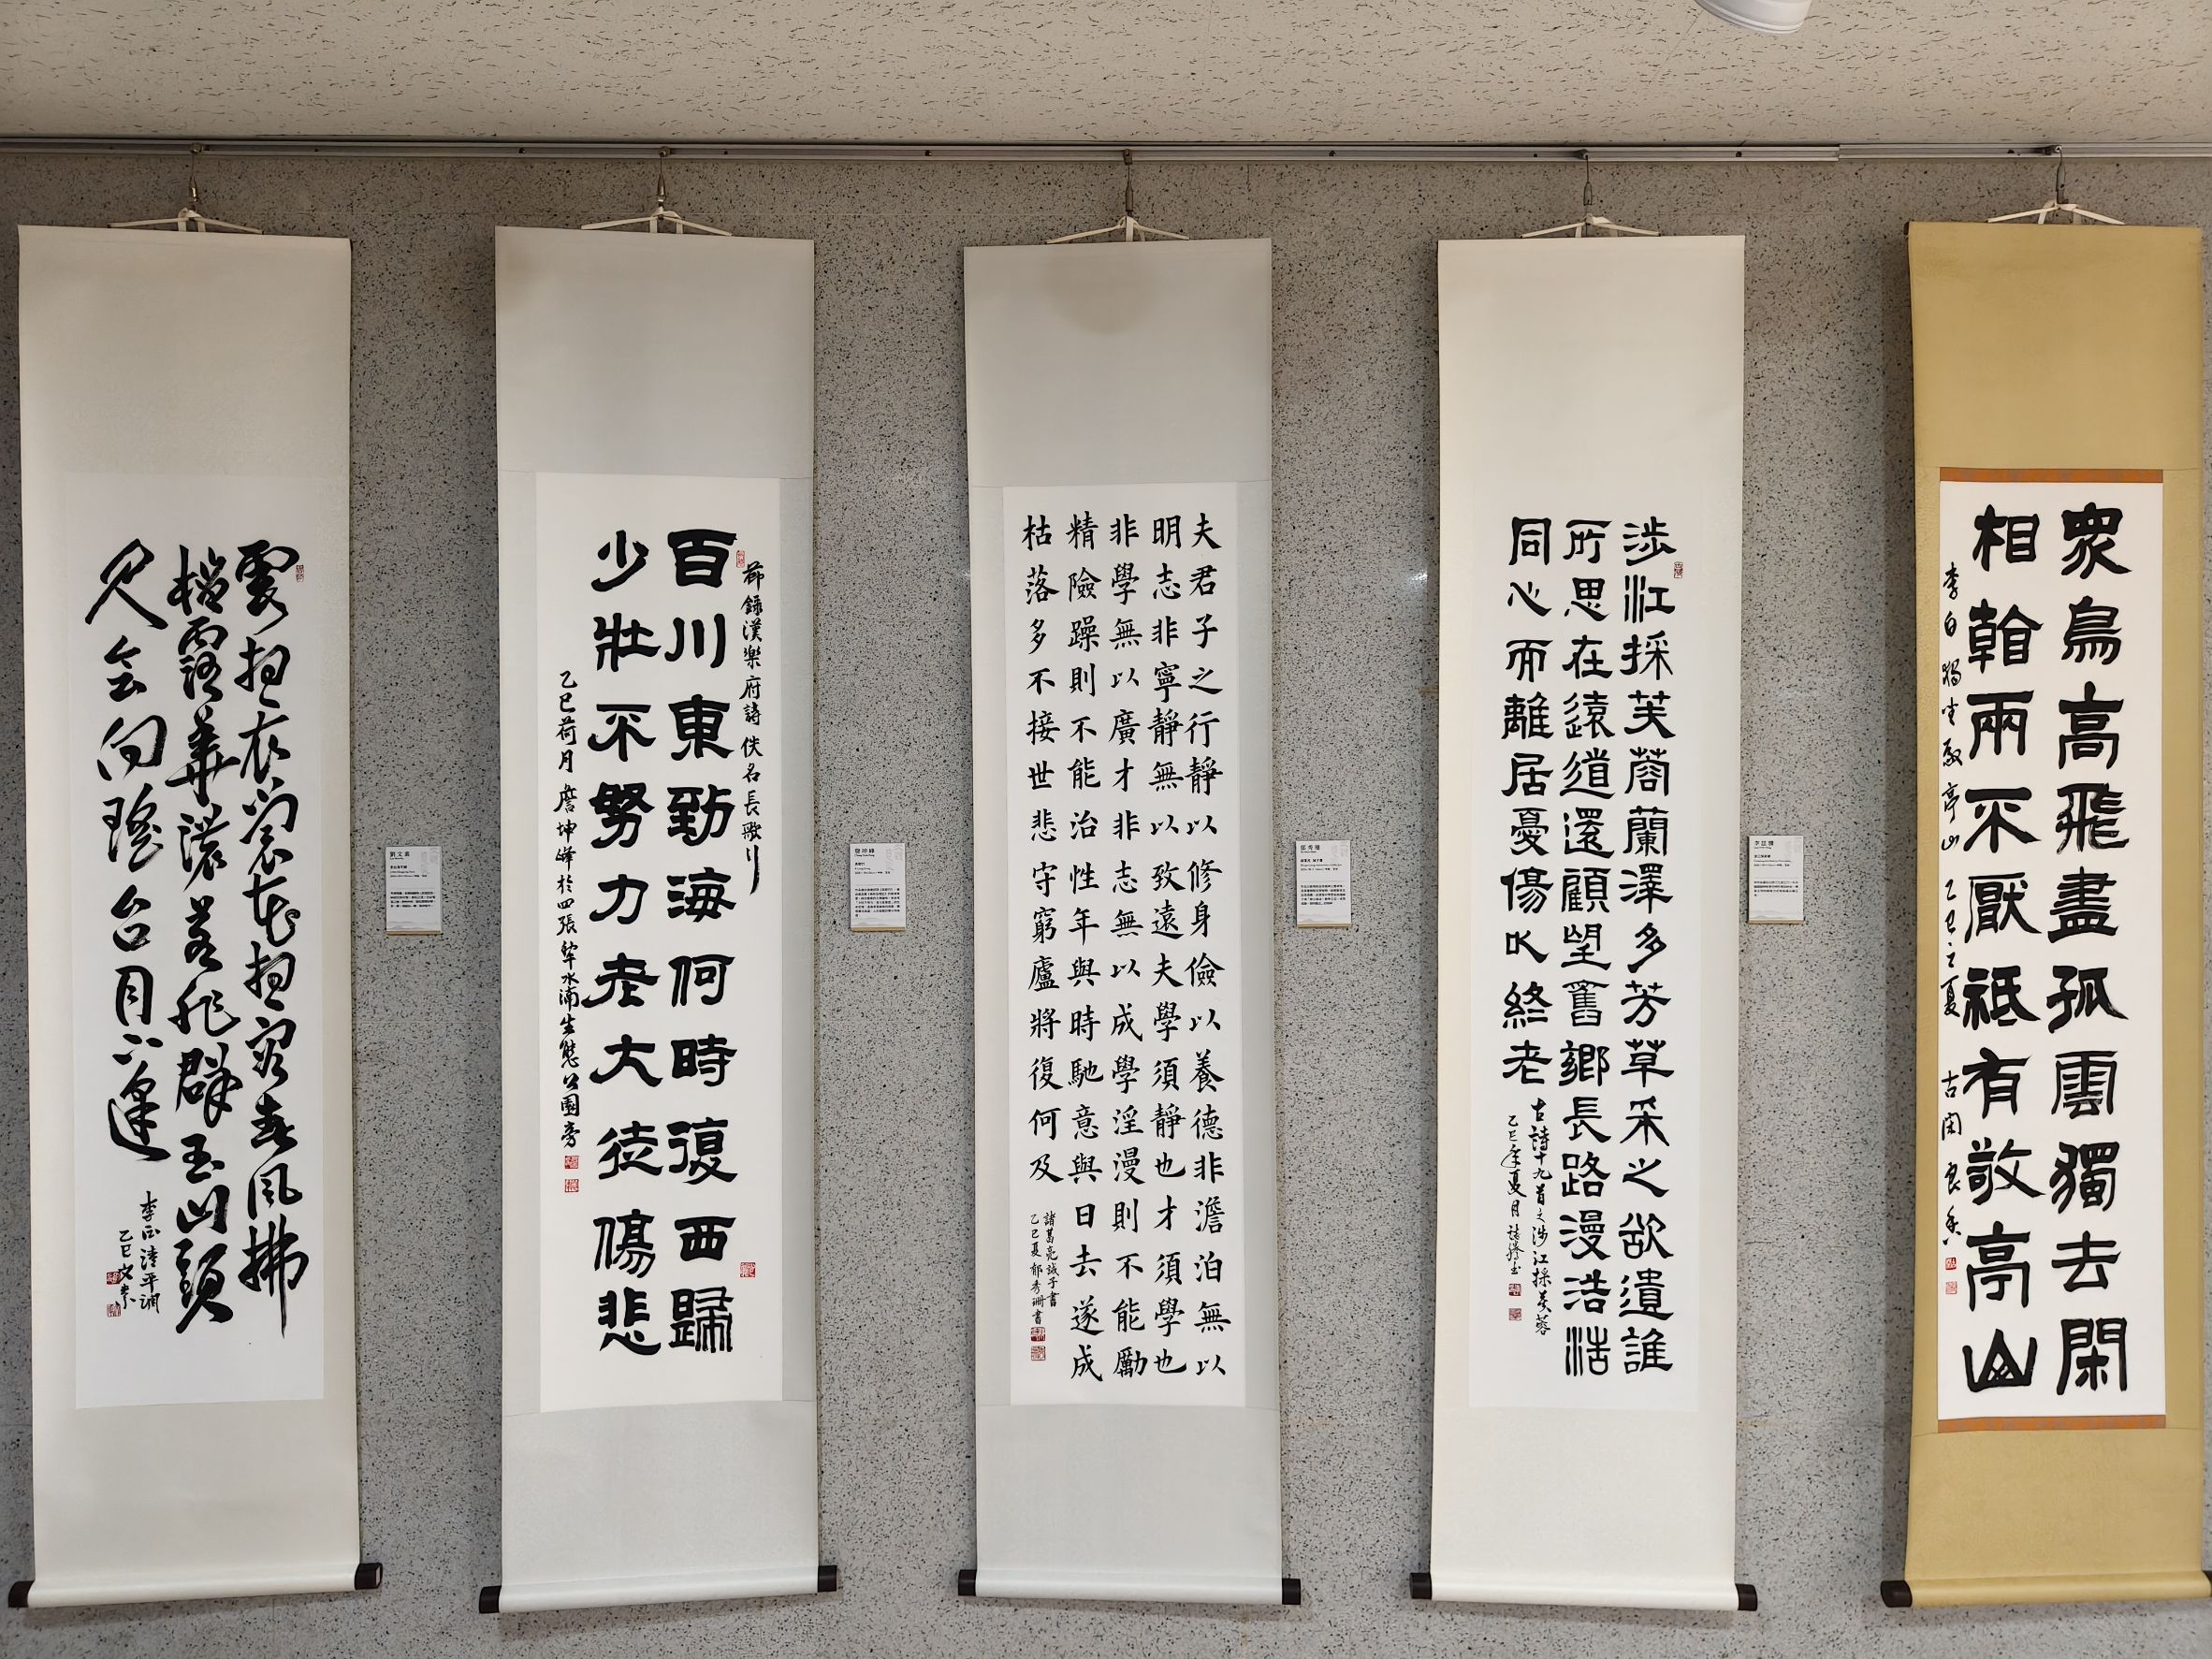 眾鳥高飛盡孤雲獨去閑
相看兩不厭祗有敬亭山
李白獨坐敬亭山 乙巳之夏
涉江採芙蓉蘭澤多芳草采之欲遺誰
所思在遠道還顧望舊鄉長路漫浩浩
同心而離居憂傷以終老
古詩十九首之涉江採芙蓉
乙巳年夏月
夫君子之行靜以修身儉以養德非澹泊無以
明志非寧靜無以致遠夫學須靜也才須學也
非學無以廣才非志無以成學淫漫則不能勵
精險躁則不能治性年與時馳意與日去遂成
枯落多不接世悲守窮廬將復何及
諸葛亮誡子書
乙巳夏郁秀珊書
節錄漢樂府詩佚名長歌行
百川東到海何時復西歸
少壯不努力老大徒傷悲
乙巳荷月詹坤峰於四張犂水湳生態公園旁
雲想衣裳花想容春風拂
檻露華濃若非群玉山頭
見会向瑤台月下逢
李白清平調
乙巳文素